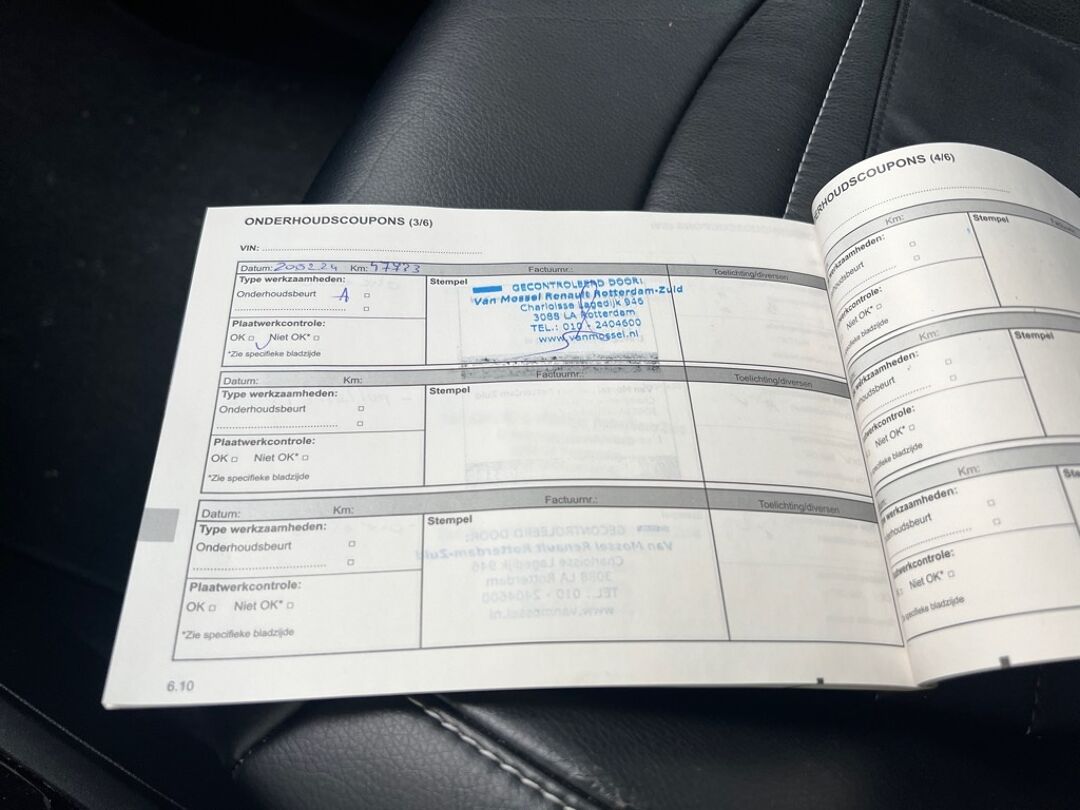 ONDERHOUDSCOUPONS (3/6)
VIN:
Datum: Km: Factuurnr.: Toelichting/diversen
Type werkzaamheden:
Onderhoudsbeurt A
Plaatwerkcontrole:
OK Niet OK*
*Zie specifieke bladzijde
Stempel
GECONTROLEERD DOOR:
Van Mossel Renault Rotterdam-Zuid
Charloisse Lagedijk 946
3088 LA Rotterdam
TEL.: 010 - 2404600
www.vanmossel.nl
Datum: Km: Factuurnr.: Toelichting/diversen
Type werkzaamheden:
Onderhoudsbeurt
Plaatwerkcontrole:
OK Niet OK*
*Zie specifieke bladzijde
Stempel
Datum: Km: Factuurnr.: Toelichting/diversen
Type werkzaamheden:
Onderhoudsbeurt
Plaatwerkcontrole:
OK Niet OK*
*Zie specifieke bladzijde
Stempel
6.10
ERHOUDSCOUPONS (4/6)
Km:
werkzaamheden:
Stempel
Niet OK*
Km:
werkzaamheden:
Stempel
Niet OK*
Km:
werkzaamheden:
Niet OK*